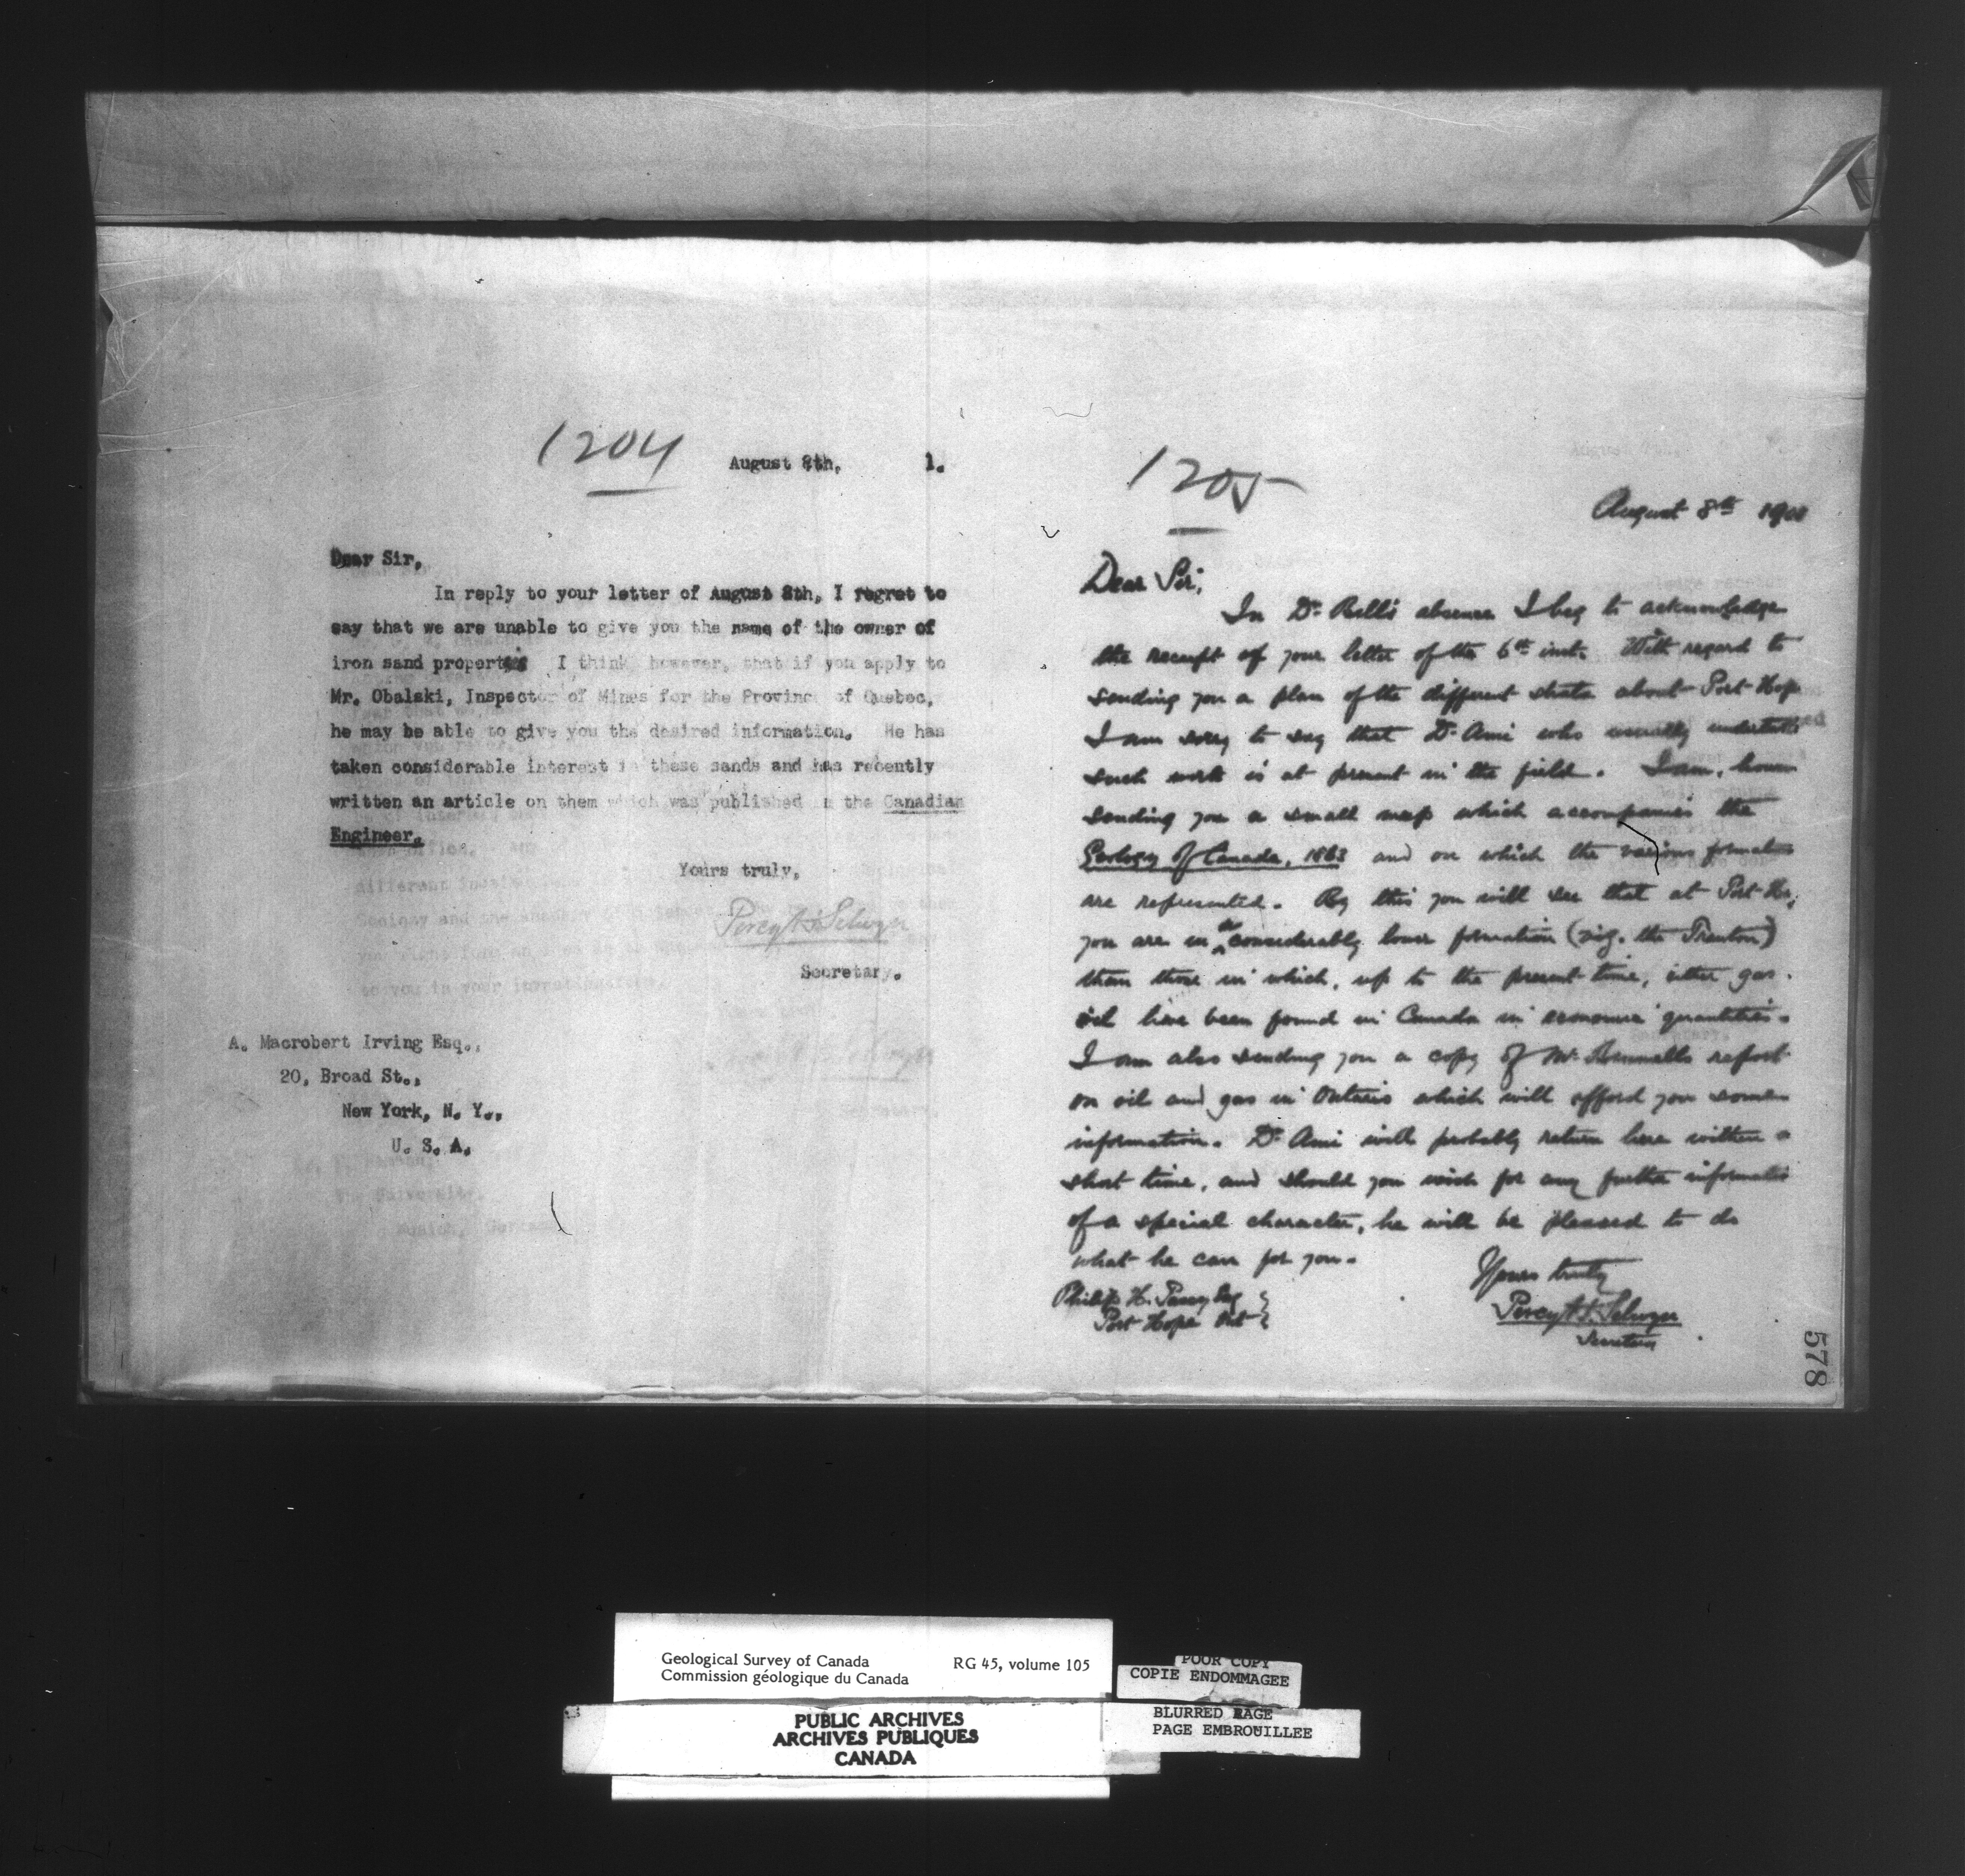 1204
August 8th, 1.
Dear Sir,
In reply to your letter of August 8th, I regret to
say that we are unable to give you the name of the owner of
iron sand properties I think however, that if you apply to
Mr. Obalski, Inspector of Mines for the Province of Quebec,
he may be able to give you the desired information. He has
taken considerable interest in these sands and has recently
written an article on them which was published in the Canadian
Engineer.
Yours truly,
Percy H. Selwyn
Secretary.
A. Macrobert Irving Esq.,
20, Broad St.,
New York, N. Y.,
U. S. A.
1205
August 8th 1901
Dear Sir,
In Dr. Bell's absence I beg to acknowledge
the receipt of your letter of the 6th inst. With regard to
sending you a plan of the different strata about Port Hope
I am sorry to say that Dr. Ami who usually undertakes
such work is at present in the field. I am,
sending you a small map which accompanies the
Geology of Canada, 1863 and on which the various formations
are represented. By this you will see that at Port
you are in a considerably lower formation (viz. the Trenton)
than those in which, up to the present time, either gas
oil have been found in Canada in economic quantities.
I am also sending you a copy of Mr. Brumell's report
on oil and gas in Ontario which will afford you some
information. Dr. Ami will probably return here within a
short time, and should you wish for any further information
of a special character, he will be pleased to do
what he can for you.
Yours truly
Percy H. Selwyn
Secretary
Philip H. Esq
Port Hope Ont
578
Geological Survey of Canada RG 45, volume 105
Commission géologique du Canada
PUBLIC ARCHIVES
ARCHIVES PUBLIQUES
CANADA
POOR COPY
COPIE ENDOMMAGEE
BLURRED PAGE
PAGE EMBROUILLEE